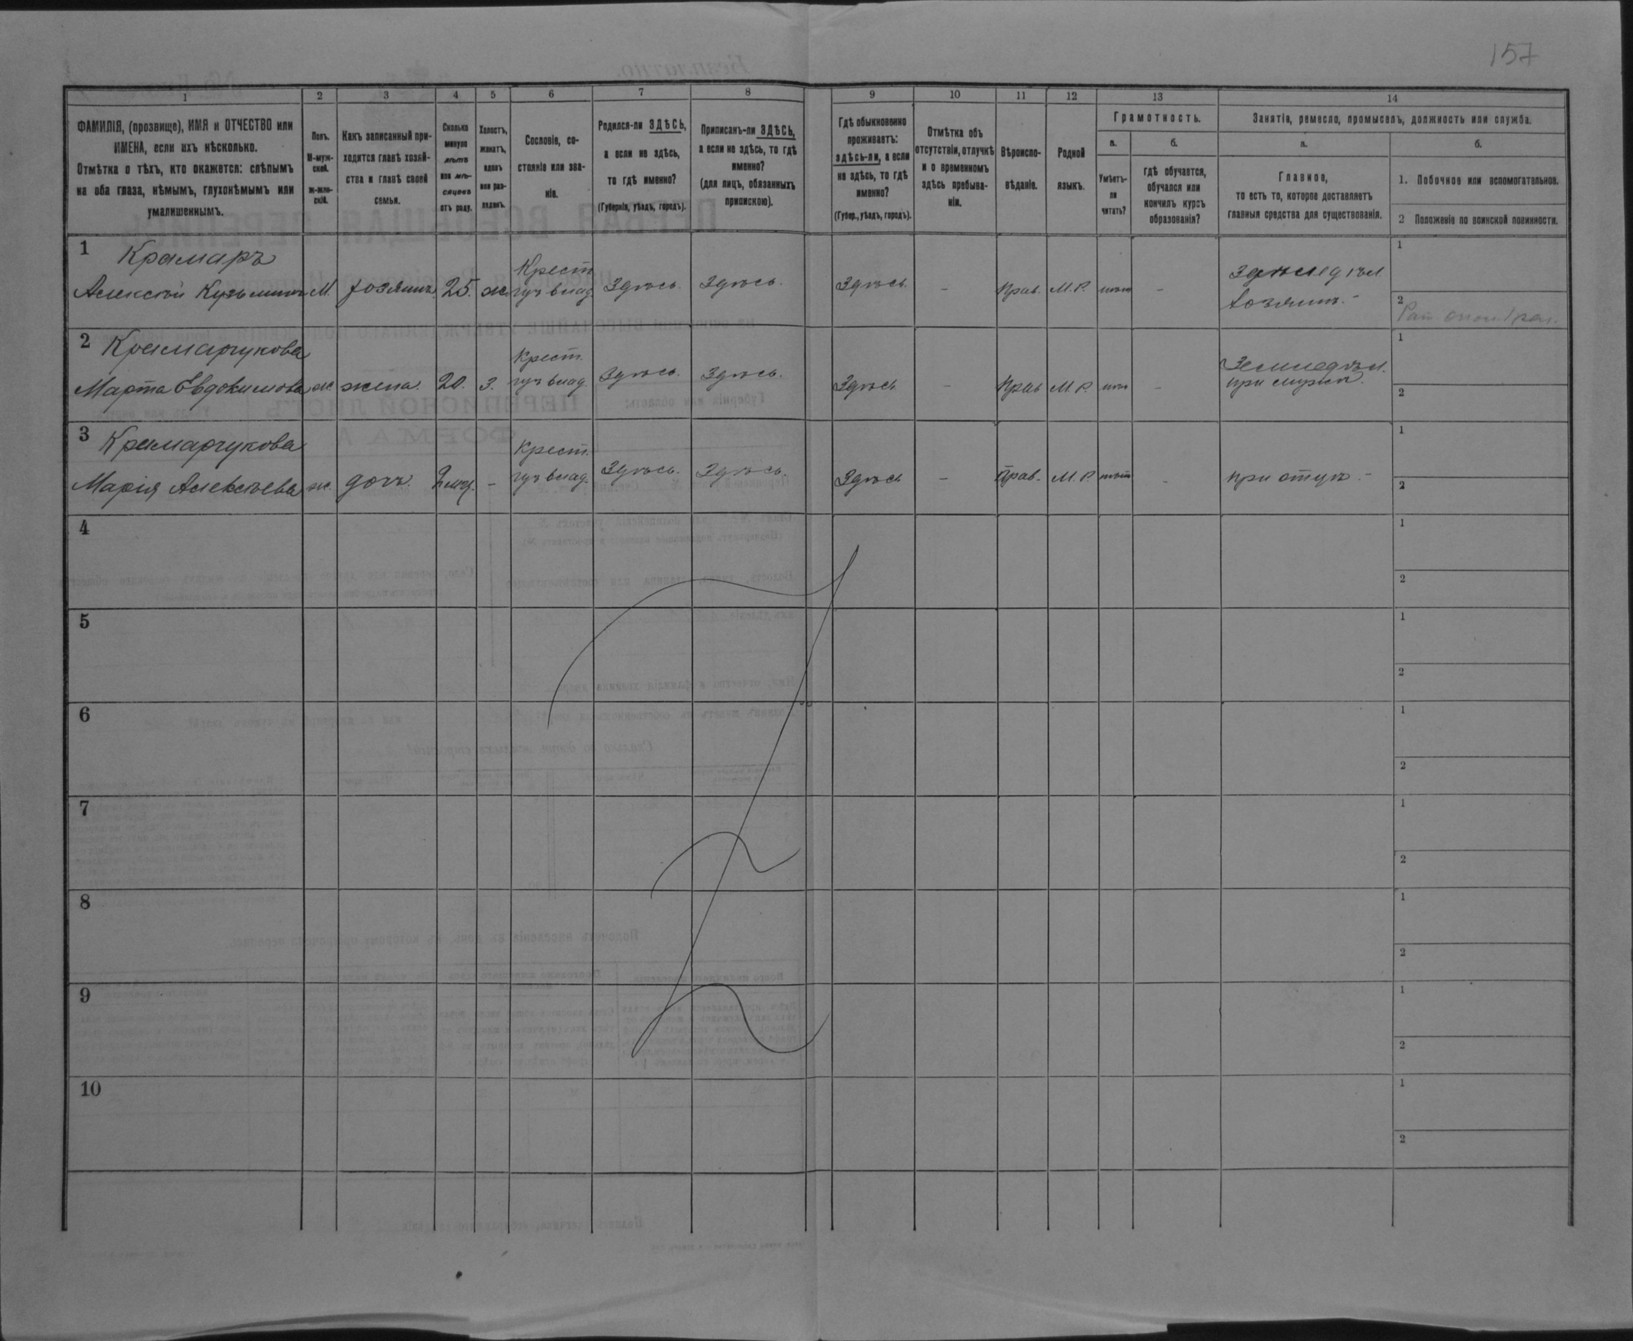 157
1 2 3 4 5 6 7 8 9 10 11 12 13 14
ФАМИЛІЯ, (прозвище), ИМЯ и ОТЧЕСТВО или
ИМЕНА, если ихъ нѣсколько.
Отмѣтка о тѣхъ, кто окажется: слѣпымъ
на оба глаза, нѣмымъ, глухонѣмымъ или
умалишеннымъ.
Полъ.
М-муж-
ской.
Ж-жен-
скій.
Какъ записанный при-
ходится главѣ хозяй-
ства и главѣ своей
семьи.
Сколько
минуло
лѣтъ
или мѣ-
сяцевъ
отъ роду.
Холостъ,
женатъ,
вдовъ
или раз-
веденъ.
Сословіе, со-
стояніе или зва-
ніе.
Родился-ли ЗДѢСЬ,
а если не здѣсь,
то гдѣ именно?
(Губернія, уѣздъ, городъ).
Приписанъ-ли ЗДѢСЬ,
а если не здѣсь, то гдѣ
именно?
(для лицъ, обязанныхъ
припискою).
Гдѣ обыкновенно
проживаетъ:
здѣсь-ли, а если
не здѣсь, то гдѣ
именно?
(Губер., уѣздъ, городъ).
Отмѣтка объ
отсутствіи, отлучкѣ
и о временномъ
здѣсь пребыва-
ніи.
Вѣроиспо-
вѣданіе.
Родной
языкъ.
Грамотность.
а.
Умѣетъ-
ли
читать?
б.
гдѣ обучается,
обучался или
кончилъ курсъ
образованія?
Занятія, ремесло, промыселъ, должность или служба.
а.
Главное,
то есть то, которое доставляетъ
главныя средства для существованія.
б.
1. Побочное или вспомогательное.
2 Положеніе по воинской повинности.
1 Крамаръ
Алексѣй Кузьминъ М. хозяинъ 25. ж. Крест. Здѣсь. Здѣсь. Здѣсь — Прав. М.Р. нѣтъ -
хозяинъ. -
1
2
2 Крамарчукова
Марта Евдокимова ж жена 20. з. Крест. Здѣсь. Здѣсь. Здѣсь — Прав М Р. нѣтъ -
Земледѣл.
при мужѣ.
1
2
3 Крамарчукова
Марія Алексѣева ж. дочь. 2 мѣс. - Крест. Здѣсь. Здѣсь. Здѣсь — Прав. М. Р. нѣтъ - при отцѣ -
1
2
4
1
2
5
1
2
6
1
2
7
1
2
8
1
2
9
1
2
10
1
2